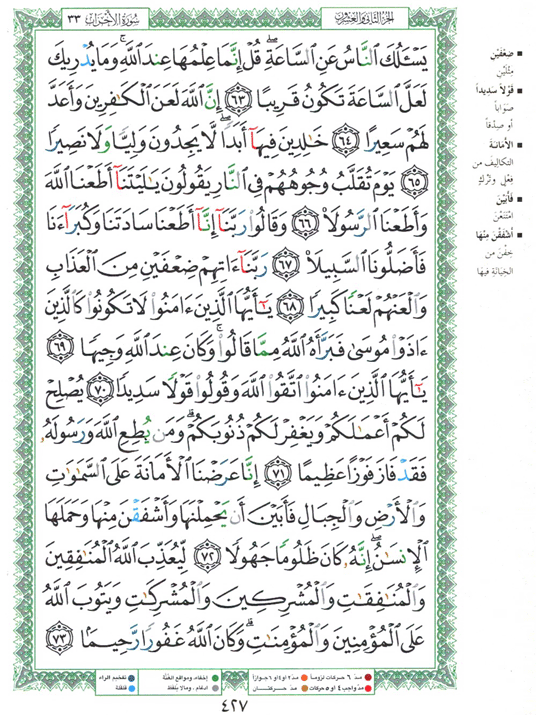 سُورَةُ الأحزَاب ٣٣
الجُزءُ الثَّاني وَالعِشرُونَ
يَسْـَٔلُكَ ٱلنَّاسُ عَنِ ٱلسَّاعَةِۖ قُلْ إِنَّمَا عِلْمُهَا عِندَ ٱللَّهِۚ وَمَا يُدْرِيكَ
لَعَلَّ ٱلسَّاعَةَ تَكُونُ قَرِيبًا ٦٣ إِنَّ ٱللَّهَ لَعَنَ ٱلْكَـٰفِرِينَ وَأَعَدَّ
لَهُمْ سَعِيرًا ٦٤ خَـٰلِدِينَ فِيهَآ أَبَدًاۖ لَّا يَجِدُونَ وَلِيًّا وَلَا نَصِيرًا
٦٥ يَوْمَ تُقَلَّبُ وُجُوهُهُمْ فِى ٱلنَّارِ يَقُولُونَ يَـٰلَيْتَنَآ أَطَعْنَا ٱللَّهَ
وَأَطَعْنَا ٱلرَّسُولَا۠ ٦٦ وَقَالُوا۟ رَبَّنَآ إِنَّآ أَطَعْنَا سَادَتَنَا وَكُبَرَآءَنَا
فَأَضَلُّونَا ٱلسَّبِيلَا۠ ٦٧ رَبَّنَآ ءَاتِهِمْ ضِعْفَيْنِ مِنَ ٱلْعَذَابِ
وَٱلْعَنْهُمْ لَعْنًا كَبِيرًا ٦٨ يَـٰٓأَيُّهَا ٱلَّذِينَ ءَامَنُوا۟ لَا تَكُونُوا۟ كَٱلَّذِينَ
ءَاذَوْا۟ مُوسَىٰ فَبَرَّأَهُ ٱللَّهُ مِمَّا قَالُوا۟ۚ وَكَانَ عِندَ ٱللَّهِ وَجِيهًا ٦٩
يَـٰٓأَيُّهَا ٱلَّذِينَ ءَامَنُوا۟ ٱتَّقُوا۟ ٱللَّهَ وَقُولُوا۟ قَوْلًا سَدِيدًا ٧٠ يُصْلِحْ
لَكُمْ أَعْمَـٰلَكُمْ وَيَغْفِرْ لَكُمْ ذُنُوبَكُمْۗ وَمَن يُطِعِ ٱللَّهَ وَرَسُولَهُۥ
فَقَدْ فَازَ فَوْزًا عَظِيمًا ٧١ إِنَّا عَرَضْنَا ٱلْأَمَانَةَ عَلَى ٱلسَّمَـٰوَٰتِ
وَٱلْأَرْضِ وَٱلْجِبَالِ فَأَبَيْنَ أَن يَحْمِلْنَهَا وَأَشْفَقْنَ مِنْهَا وَحَمَلَهَا
ٱلْإِنسَـٰنُۖ إِنَّهُۥ كَانَ ظَلُومًا جَهُولًا ٧٢ لِّيُعَذِّبَ ٱللَّهُ ٱلْمُنَـٰفِقِينَ
وَٱلْمُنَـٰفِقَـٰتِ وَٱلْمُشْرِكِينَ وَٱلْمُشْرِكَـٰتِ وَيَتُوبَ ٱللَّهُ
عَلَى ٱلْمُؤْمِنِينَ وَٱلْمُؤْمِنَـٰتِۗ وَكَانَ ٱللَّهُ غَفُورًا رَّحِيمًا ٧٣
■ ضِعْفَيْنِ
مِثْلَيْنِ
■ قَوْلًا سَدِيدًا
صَوَابًا
أو صِدْقًا
■ الأمَانَةَ
التكاليفَ من
فِعْلٍ وتَرْكٍ
■ فَأَبَيْنَ
امْتَنَعْنَ
■ أشْفَقْنَ مِنْهَا
خِفْنَ من
الخِيَانَةِ فيها
مدّ ٦ حركات لزوماً مدّ ٢ أو ٤ أو ٦ جوازاً
مدّ واجب ٤ أو ٥ حركات مدّ حركتان
إخفاء، ومواقع الغُنَّة
ادغام، وما لا يُلفَظ
تفخيم الراء
قلقلة
٤٢٧